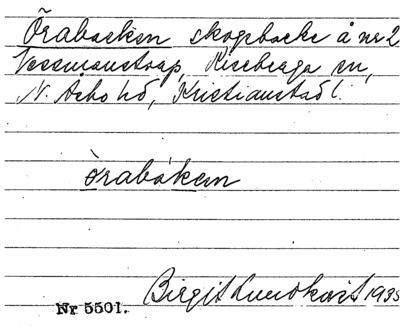 Örabacken skogsbacke å nr 2
Vessmanstrap, Riseberga sn,
N. Åsbo hd, Kristianstad l.
òrabákan
Birgit Lundkvist 1935
Nr 5501.